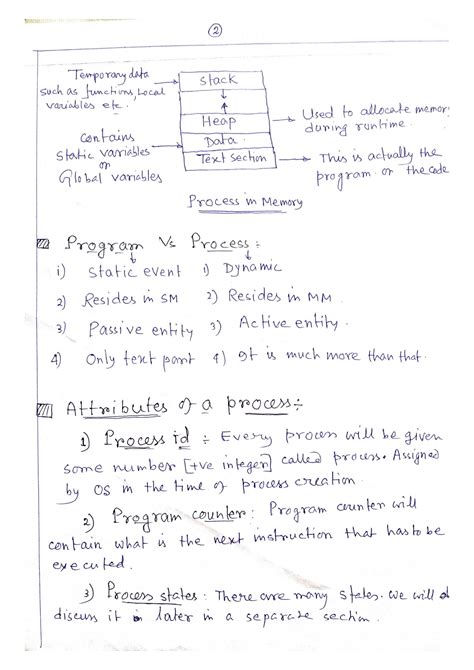 2
Temporary data
such as functions, Local
variables etc.
Stack
Heap
Data
Text Section
Used to allocate memory
during runtime.
Contains
Static variables
or
Global variables
This is actually the
program or the code
Process in Memory
Program Vs Process :-
i) Static event 1) Dynamic
2) Resides in SM 2) Resides in MM.
3) Passive entity 3) Active entity.
4) Only text part 4) It is much more than that.
Attributes of a process :-
1) Process id : Every process will be given
some number [+ve integer] called process. Assigned
by OS in the time of process creation.
2) Program counter : Program counter will
contain what is the next instruction that has to be
executed.
3) Process states : There are many states. We will
discuss it in later in a separate section.